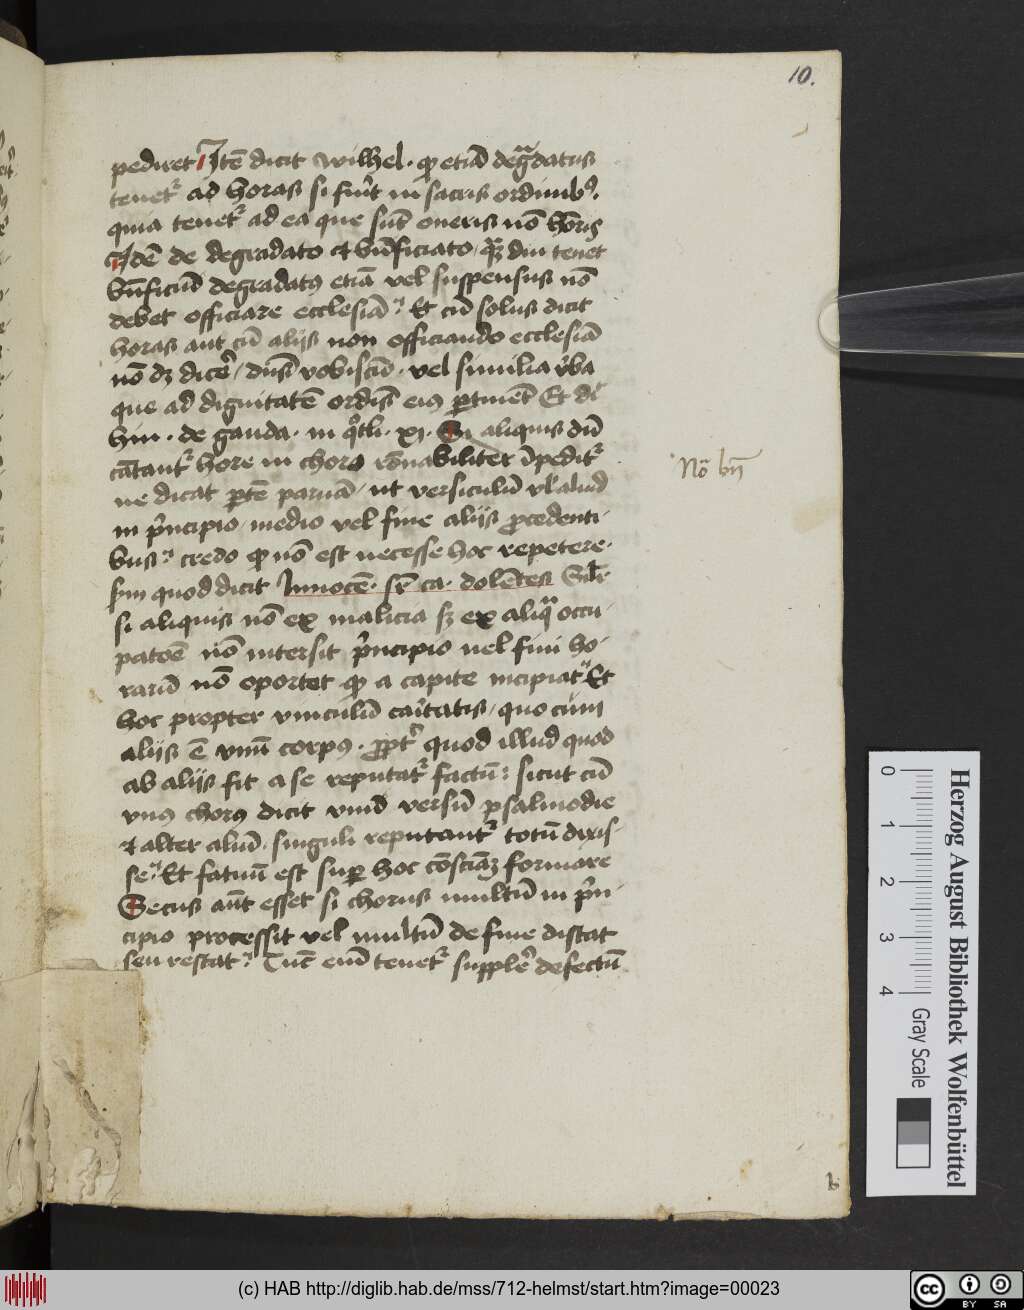 10.
pediret Itē dicit wilhel· qͻ etiā degͣdatus
tenetr ad horas si fuīt in sacris ordinibꝰ.
quia tenetr ad ea que sūt oneris nō hōris
Idē de degradato et bn̄ficiato, qm̄diu tenet
bn̄ficiū degradatꝰ etiā vel suspensus nō
debet officiare ecclesiā· Et cū solus dicit
horas aut cū alijs non officiando ecclesiā
nō dꝫ dicē / dn̄s vobiscū· vel similia v̄ba
que ad dignitatē ordīs eiꝰ ꝑtinēt Et dt̄
hin· de gauda· in qͦtli· xi· Si aliquis dū
cātantr hore in choro rōnabiliter īpeditr
ne dicat ꝑtē paruā / ut versiculū vl aliud
in p̄ncipio / medio vel fine alijs ꝓcedenti-
bus· credo qͻ nō est necesse hoc repetere·
scm̄ quod dicit Innocē· sr̄ ca· dolētes Silr̄
si aliquis nō ex malicia sꝫ ex aliqͣ occu-
patōē nō intersit p̄ncipio uel fini ho-
rarū nō oportet qͻ a capite incipiat Et
hoc propter vinculū caītatis / quo cūm
alijs ē vnū corpꝰ· ꝓptr quod illud quod
ab alijs fit a se reputatr factū: sicut cū
vnꝰ chorꝰ dicit vnū versū psalmodie
et alter aliū· singuli reputantr totū dixis-
se· Et fatuū est suꝑ hoc cōsciāꝫ formare
Secus aūt esset si chorus multū in p̄n-
cipio processit vel multū de fine distat
seu restat· Tūc em̄ tenetr supplē defectū
Nō bn̄
Herzog August Bibliothek Wolfenbüttel
0 1 2 3 4 Gray Scale
(c) HAB http://diglib.hab.de/mss/712-helmst/start.htm?image=00023
cc BY SA